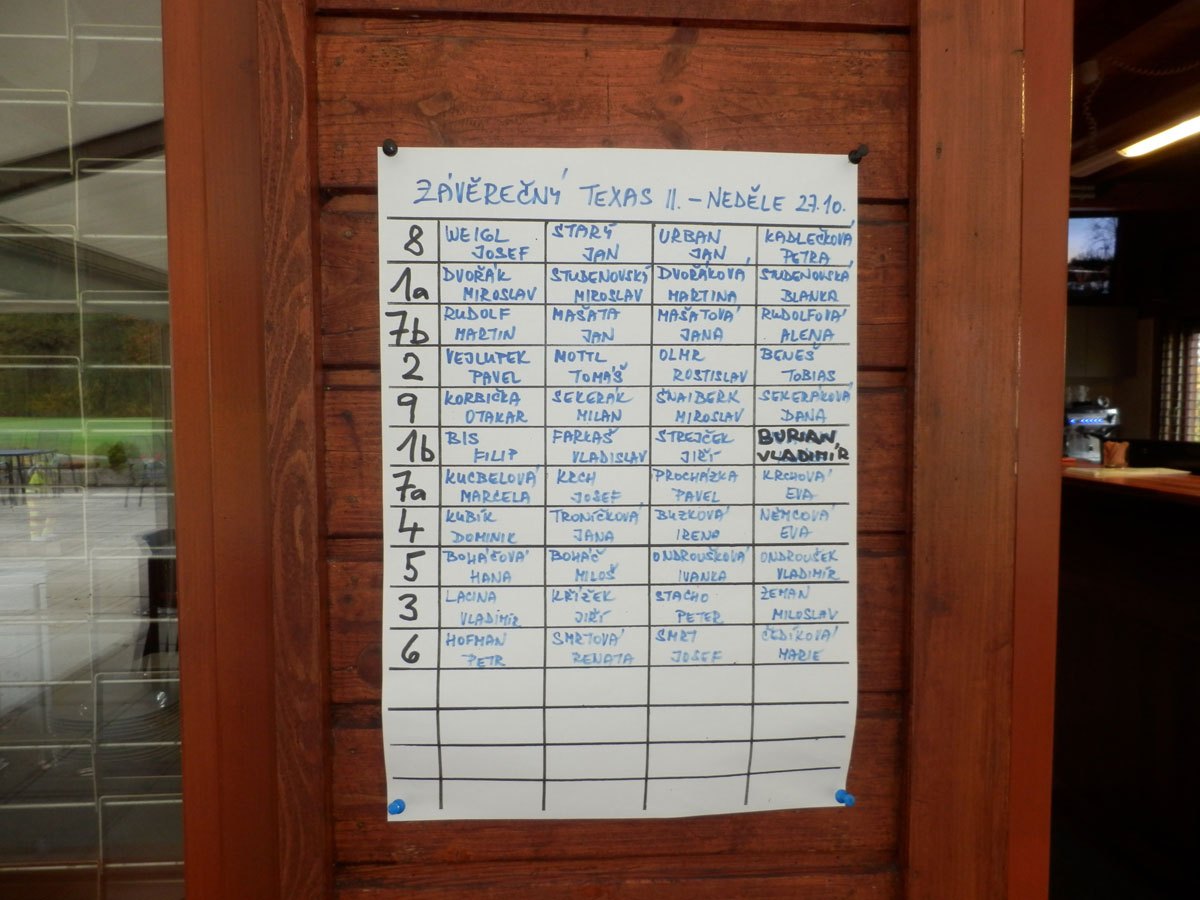 ZÁVĚREČNÝ TEXAS II. – NEDĚLE 27.10.
8 WEIGL STARÝ URBAN KADLEČKOVÁ
JOSEF JAN JAN PETRA
1a DVOŘÁK STUDENOVSKÝ DVOŘÁKOVÁ STUDENOVSKÁ
MIROSLAV MIROSLAV MARTINA BLANKA
7b RUDOLF MAŠATA MAŠATOVÁ RUDOLFOVÁ
MARTIN JAN JANA ALENA
2 VEJLUPEK MOTTL OLMR BENEŠ
PAVEL TOMÁŠ ROSTISLAV TOBIAS
9 KORBIČKA SEKERÁK ŠNAIBERK SEKERÁKOVÁ
OTAKAR MILAN MIROSLAV DANA
1b BIS FARKAŠ STREJČEK BURIAN
FILIP VLADISLAV JIŘÍ VLADIMÍR
7a KUCBELOVÁ KRCH PROCHÁZKA KRCHOVÁ
MARCELA JOSEF PAVEL EVA
4 KUBÍK TRONÍČKOVÁ BUZKOVÁ NĚMCOVÁ
DOMINIK JANA IRENA EVA
5 BOHÁČOVÁ BOHÁČ ONDROUŠKOVÁ ONDROUŠEK
HANA MILOŠ IVANKA VLADIMÍR
3 LACINA KŘÍŽEK STACHO ZEMAN
VLADIMÍR JIŘÍ PETER MILOSLAV
6 HOFMAN SMRTOVÁ SMRT ČEDÍKOVÁ
PETR RENATA JOSEF MARIE